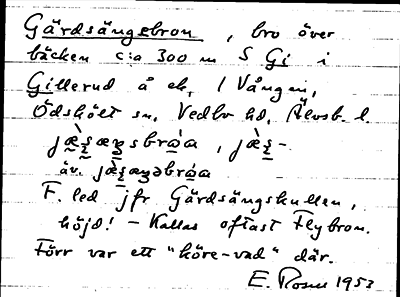 Gärdsängsbron, bro över
bäcken c:a 300 m S Gi i
Gillerud å ek, / Vången,
Ödskölt sn, Vedbo hd, Älvsb. l.
F. led jfr Gärdsängskullen,
höjd! – Kallas oftast Flybron.
Förr var ett "köre-vad" där.
E. Rosén 1953